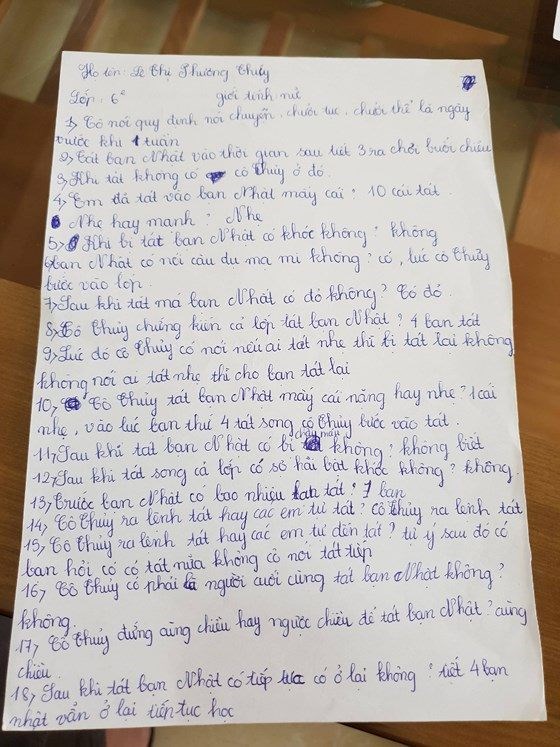 Họ tên: Lê Thị Phương Thủy
Lớp: 6e giới tính nữ
1, Cô nói quy định nói chuyện, chưởi tục, chưởi thề là ngày
trước khi 1 tuần
2, Tát bạn Nhật vào thời gian sau tiết 3 ra chơi buổi chiều
3, Khi tát không có cô Thủy ở đó.
4, Em đã tát vào bạn Nhật mấy cái? 10 cái tát.
Nhẹ hay mạnh? Nhẹ
5, Khi bị tát bạn Nhật có khóc không? không
6, bạn Nhật có nói câu đu ma mi không? có, lúc cô Thủy
bước vào lớp.
7, Sau khi tát má bạn Nhất có đỏ không? Có đỏ.
8, Cô Thủy chứng kiến cả lớp tát bạn Nhật? 4 bạn tát
9, Lúc đó cô Thủy có nói nếu ai tát nhẹ thì bị tát lại không
không nói ai tát nhẹ thì cho bạn tát lại
10, Cô Thủy tát bạn Nhật mấy cái nặng hay nhẹ? 1 cái
nhẹ, vào lúc bạn thứ 4 tát song cô Thủy bước vào tát.
11, Sau khi tát bạn Nhật có bị chảy máu không? không biết
12, Sau khi tát song cả lớp có sợ hãi bật khóc không? không.
13, Trước bạn Nhật có bao nhiêu bạn tát? 7 bạn
14, Cô Thủy ra lệnh tát hay các em tự tát? cô Thủy ra lệnh tát
15, Cô Thủy ra lệnh tát hay các em tự đến tát? tự ý sau đó có
bạn hỏi cô có tát nữa không cô nói tát tiếp
16, Cô Thủy có phải là người cuối cùng tát bạn Nhật không?
không.
17, Cô Thủy đứng cùng chiều hay ngược chiều để tát bạn Nhật? cùng
chiều.
18, Sau khi tát bạn Nhật có tiếp tục có ở lại không? tiết 4 bạn
nhật vẫn ở lại tiếp tục học